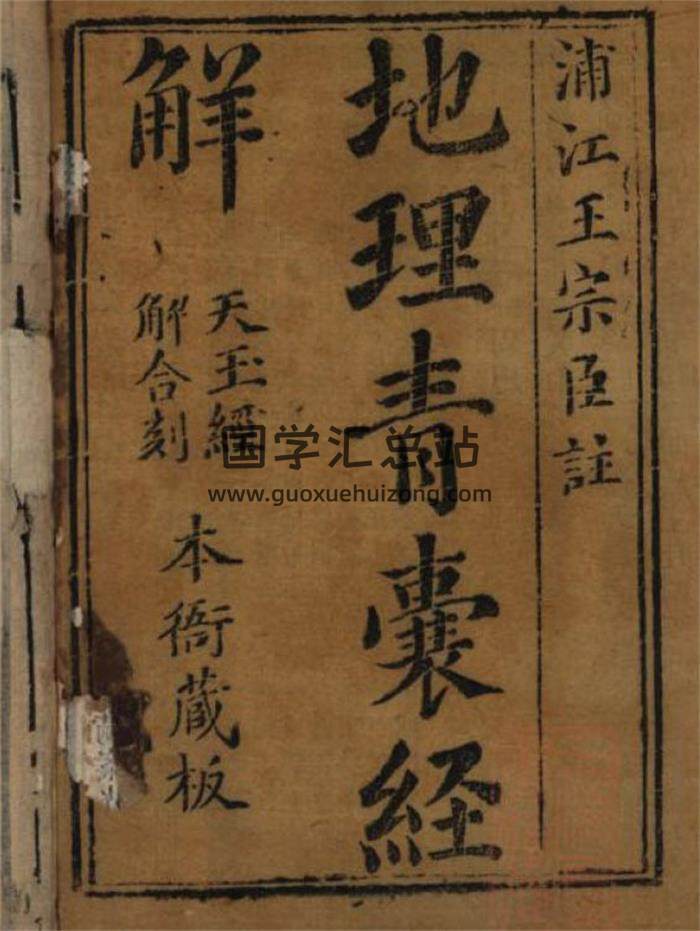 浦江王宗臣註
地理青囊经
解
天玉經
解合刻
本衙蔵板
国学汇总站
www.guoxuehuizong.com